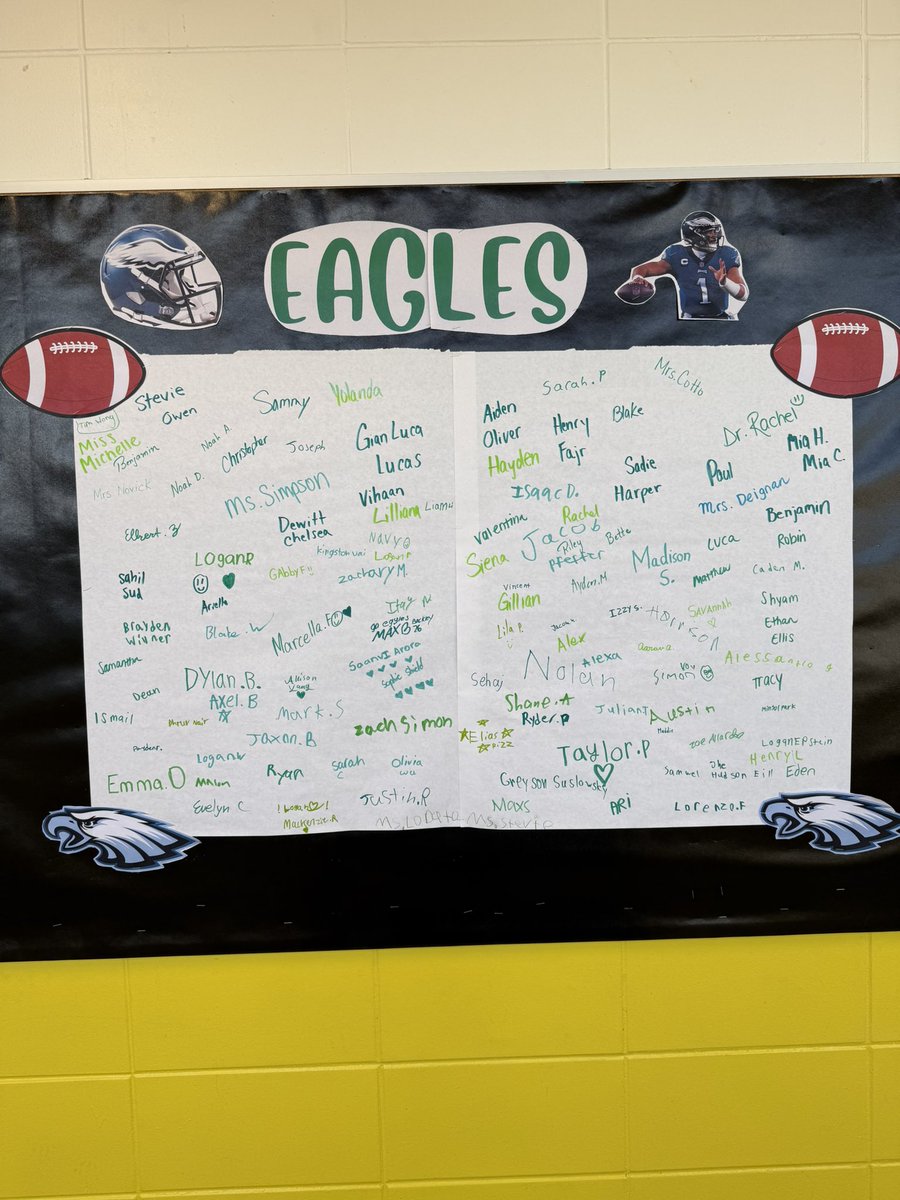 EAGLES
1
Stevie
Owen
Sammy
Yolanda
Tim Wong
Miss
Michelle
Benjamin
Noah A.
Christopher
Joseph
GianLuca
Lucas
Mrs. Novick
Noah D.
Ms. Simpson
Vihaan
Lilliana
Liam
Dewitt
chelsea
Elbert. Z
Logan.R
GAbby F
zachary M.
Sahil
Sud
Ariella
Brayden
Winner
Blake. W
Marcella.F
Itay
go eagles
MAX
Saanvi Arora
Sophie Shield
Samantha
Dean
DYlan.B.
AXel.B
Allison
Mark.S
Ismail
zach Simon
Jaxon.B
Logan
Emma.O
Ryan
Sarah
C
Olivia
Wu
Evelyn C
Mackenzie.R
Justin.R
Ms. Stevie
Sarah.P
Mrs. Cotto
Aiden
Oliver
Henry
Blake
Dr. Rachel
Hayden
Fajr
Sadie
Paul
Mia H.
Mia C.
Isaac D.
Harper
Mrs. Deignan
Valentina
Rachel
Jacob
Bette
Benjamin
Siena
Riley
Pfeffer
Madison
S.
Luca
Robin
Matthew
Caden M.
Vincent
Gillian
Ayden.M
Lila P.
Izzy S.
Harrison
Savannah
Shyam
Ethan
Ellis
Alex
Aarava
Nolan
Alexa
Sehaj
Simon
Alessandro
Tracy
Shane.A
Ryder.P
Juliana
Austin
Maddie
Elias
Taylor.P
zoe Allardes
Logan Epstein
Henry L
Greyson Suslovsky
Samuel
Jke
Hudson
Eill
Eden
Maxs
ARi
Lorenzo.F